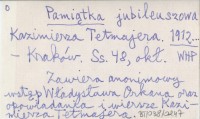 Pamiątka jubileuszowa
Kazimierza Tetmajera. 1912...
– Kraków. Ss. 48, okł. WHP
Zawiera anonimowy
wstęp Władysława Orkana oraz
opowiadania i wiersze Kazi-
mierza Tetmajera.